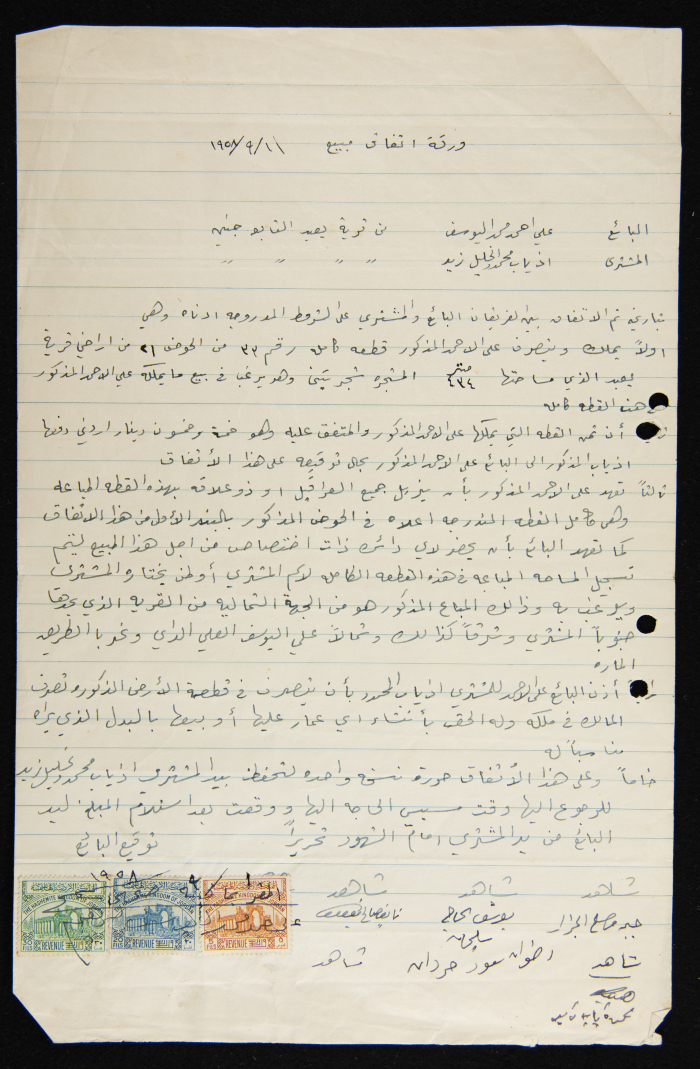 ورقة اتفاق مبيع ١٩٥٨/٩/١١
البائع علي احمد محمد اليوسف من قرية يعبد التابع جنين
المشتري اذياب محمد الخليل زيد " " " "
بتاريخه تم الاتفاق بين الفريقان البائع والمشتري على الشروط المدروجه ادناه وهي
اولاً يملك ويتصرف علي الاحمد المذكور قطعه كامله رقم ٣٣ من الحوض ٢١ من اراضي قرية
يعبد الذي مساحتها ٤٣٤ متر المشجره شجر تين وهو يرغب في بيع ما يملكه علي الاحمد المذكور
هذه القطعه كامله
أن ثمن القطعه التي يملكها علي الاحمد المذكور والمتفق عليه وهو خمسة وخمسون دينار اردني دفعها
اذياب المذكور الى البائع علي الاحمد المذكور بحال توقيعه على هذا الأتفاق
ثالثاً تعهد علي الاحمد المذكور بأن يزيل جميع العراقيل او ذو علاقه بهذه القطعه المباعه
وهي كامل القطعه المندرجه اعلاه في الحوض المذكور بالبند الأول من هذا الاتفاق
كما تعهد البائع بأن يحضر لاي دائره ذات اختصاص من اجل هذا المبيع ليتم
تسجيل المساحه المباعه في هذه القطعه الكامله لاسم المشتري أو لمن يختاره المشتري
ويرغب به وذالك المباع المذكور هو من الجهة الشماليه من القريه الذي يحدها
جنوباً المشتري وشرقاً كذالك وشمالاً علي اليوسف العلي الداي وغرباً الطريق
الماره
رابعاً أذن البائع علي الاحمد للمشتري اذياب المحمد بأن يتصرف في قطعة الأرض المذكوره تصرف
المالك في ملكه وله الحق بأنشاء اي عمار عليها أو بيعها بالبدل الذي يراه
مناسباً له
خامساً وعلى هذا الأتفاق حررة نسخه واحده لتحفظ بيد المشتري اذياب محمد خليل زيد
للرجوع اليها وقت مسيس الحاجه اليها ووقعت بعد استلام المبلغ ليد
البائع من يد المشتري امام الشهود تحريراً توقيع البائع
شاهد شاهد شاهد
THE HASHEMITE KINGDOM OF JORDAN
REVENUE
شاهد شاهد